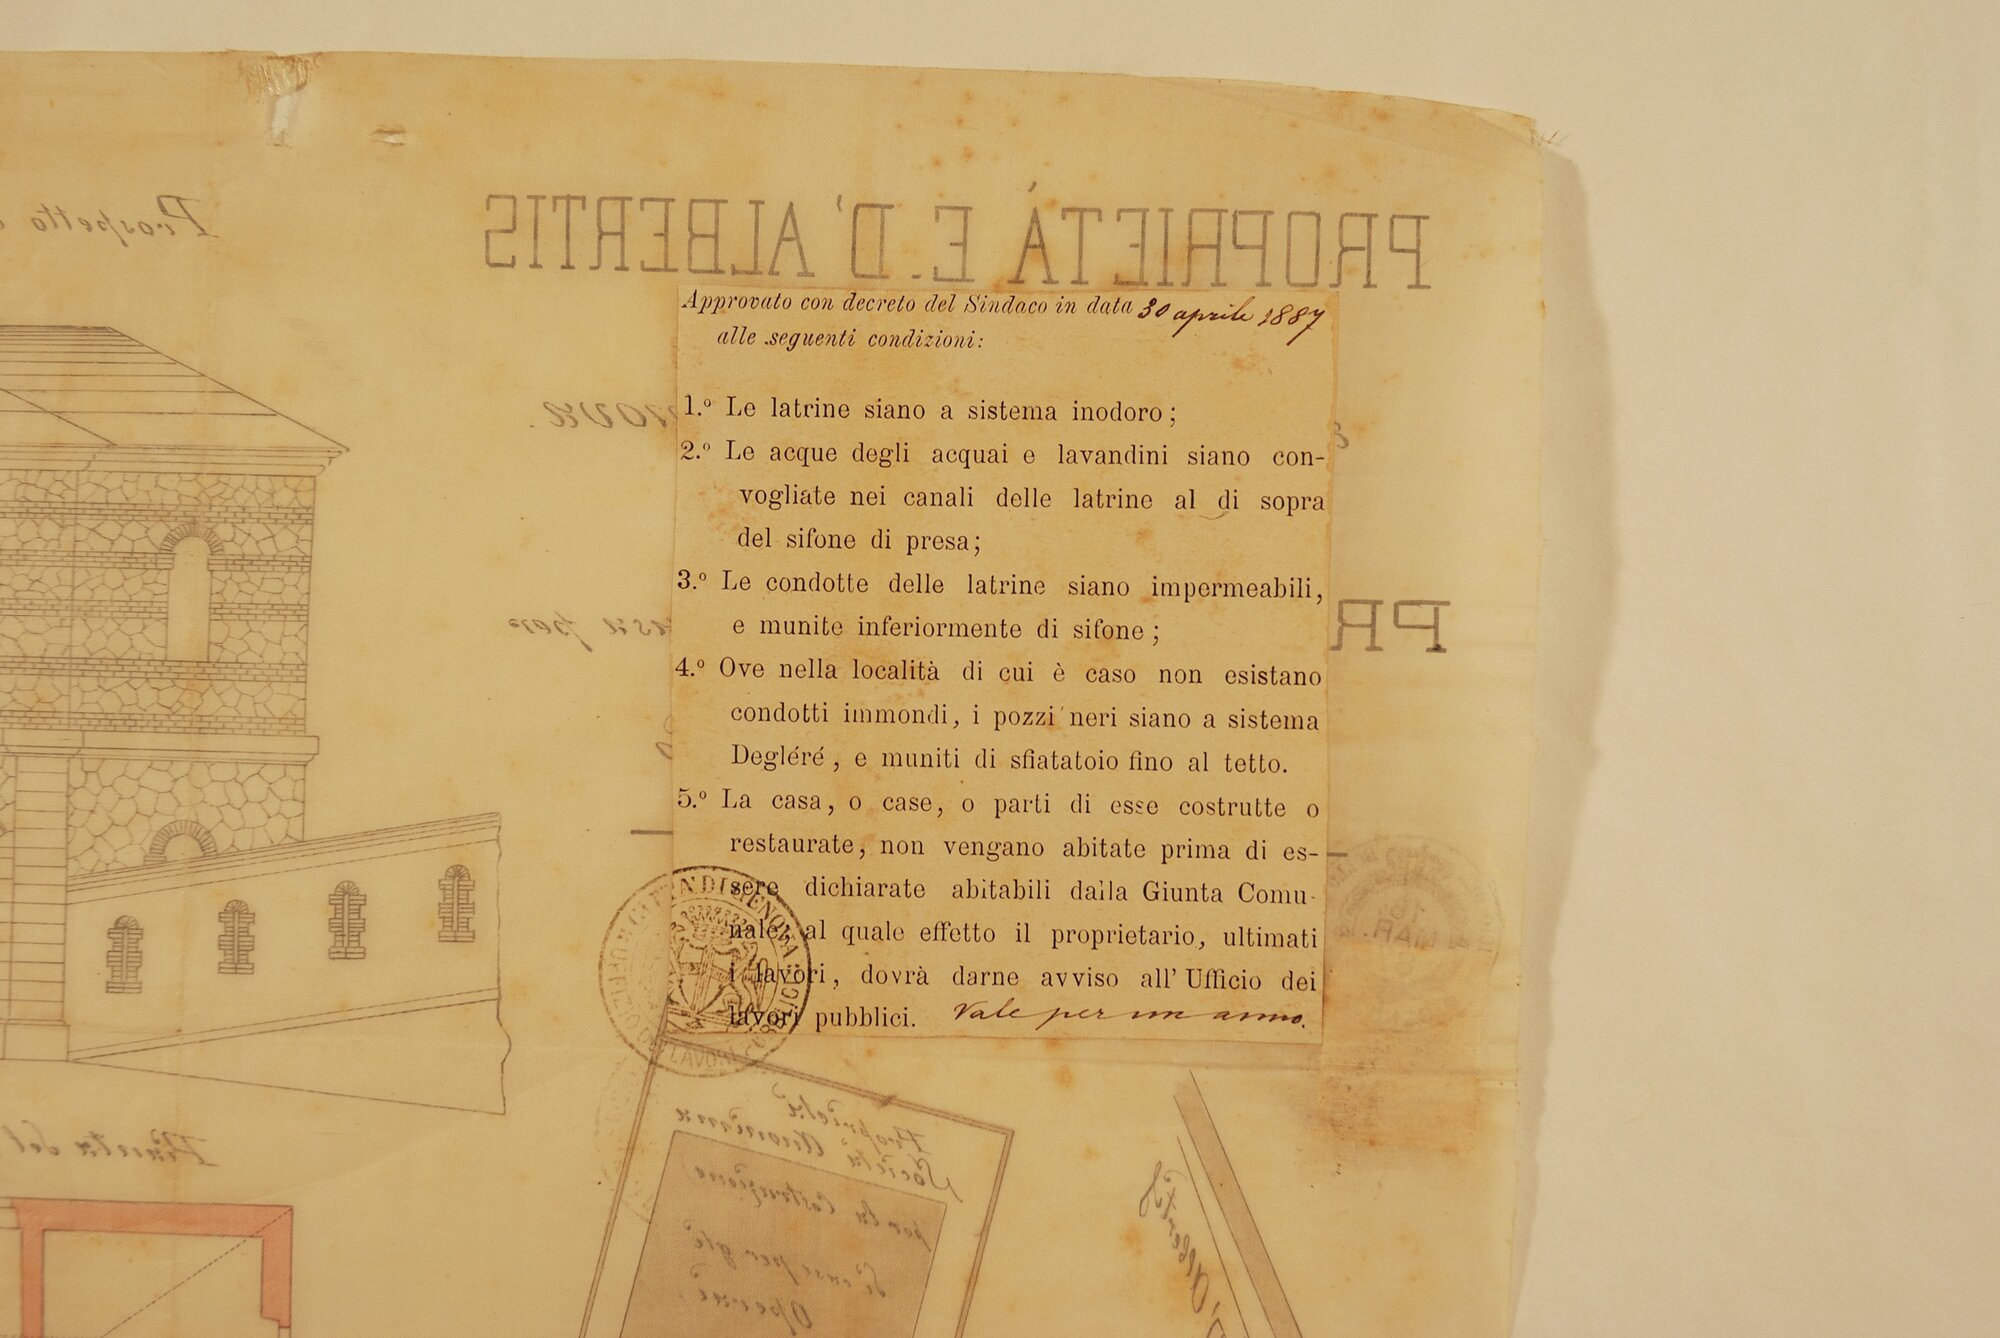 Prospetto
PROPRIETÁ E. D'ALBERTIS
Approvato con decreto del Sindaco in data 30 aprile 1887
alle seguenti condizioni:
1.º Le latrine siano a sistema inodoro;
2.º Le acque degli acquai e lavandini siano con-
vogliate nei canali delle latrine al di sopra
del sifone di presa;
3.º Le condotte delle latrine siano impermeabili,
e munite inferiormente di sifone;
4.º Ove nella località di cui è caso non esistano
condotti immondi, i pozzi neri siano a sistema
Degléré, e muniti di sfiatatoio fino al tetto.
5.º La casa, o case, o parti di esse costrutte o
restaurate, non vengano abitate prima di es-
sere dichiarate abitabili dalla Giunta Comu-
nale; al quale effetto il proprietario, ultimati
i lavori, dovrà darne avviso all'Ufficio dei
lavori pubblici. Vale per un anno.
PR
per
16
MAR.
DI GENOVA
Pianta del
Proprietà
Società Anonima
per la Costruzione
di case per gli
Operai